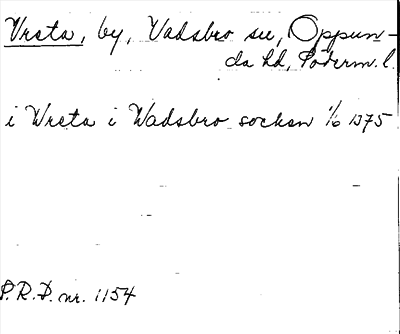 Vreta, by, Vadsbro sn, Oppun-
da hd, Söderm. l.
i Wreta i Wadsbro socken 1/6 1375
P.R.P. nr. 1154